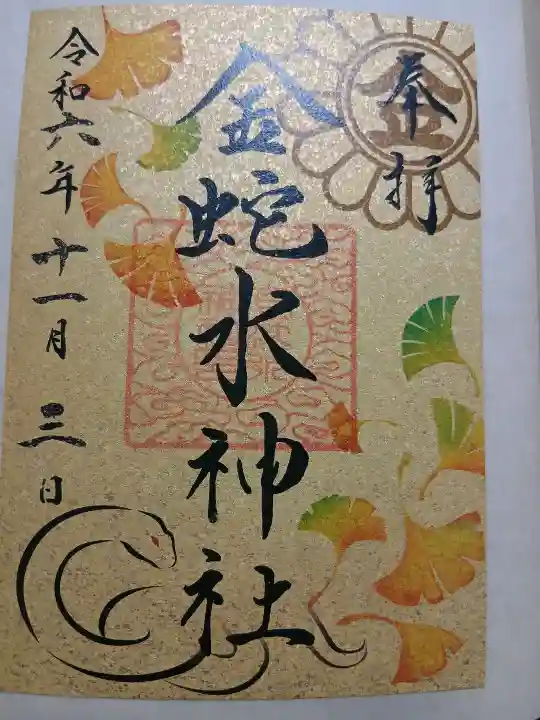 奉拝
金
金蛇水神社
令和六年十一月三日